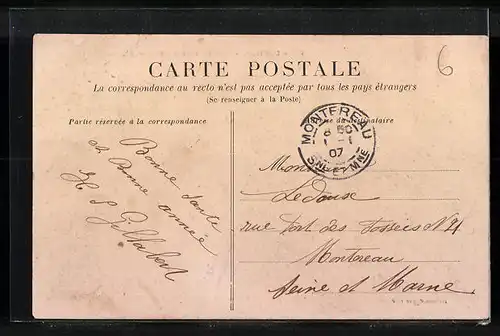 6
CARTE POSTALE
La correspondance au recto n'est pas acceptée par tous les pays étrangers
(Se renseigner à la Poste)
Partie réservée à la correspondance
du destinataire
MONTEREAU
8 50
1 - 1
07
SNE-ET-MNE
Bonne Santé
et Bonne année
Mon
Ledoux
rue Port des Fossées N 24
Montereau
Seine et Marne